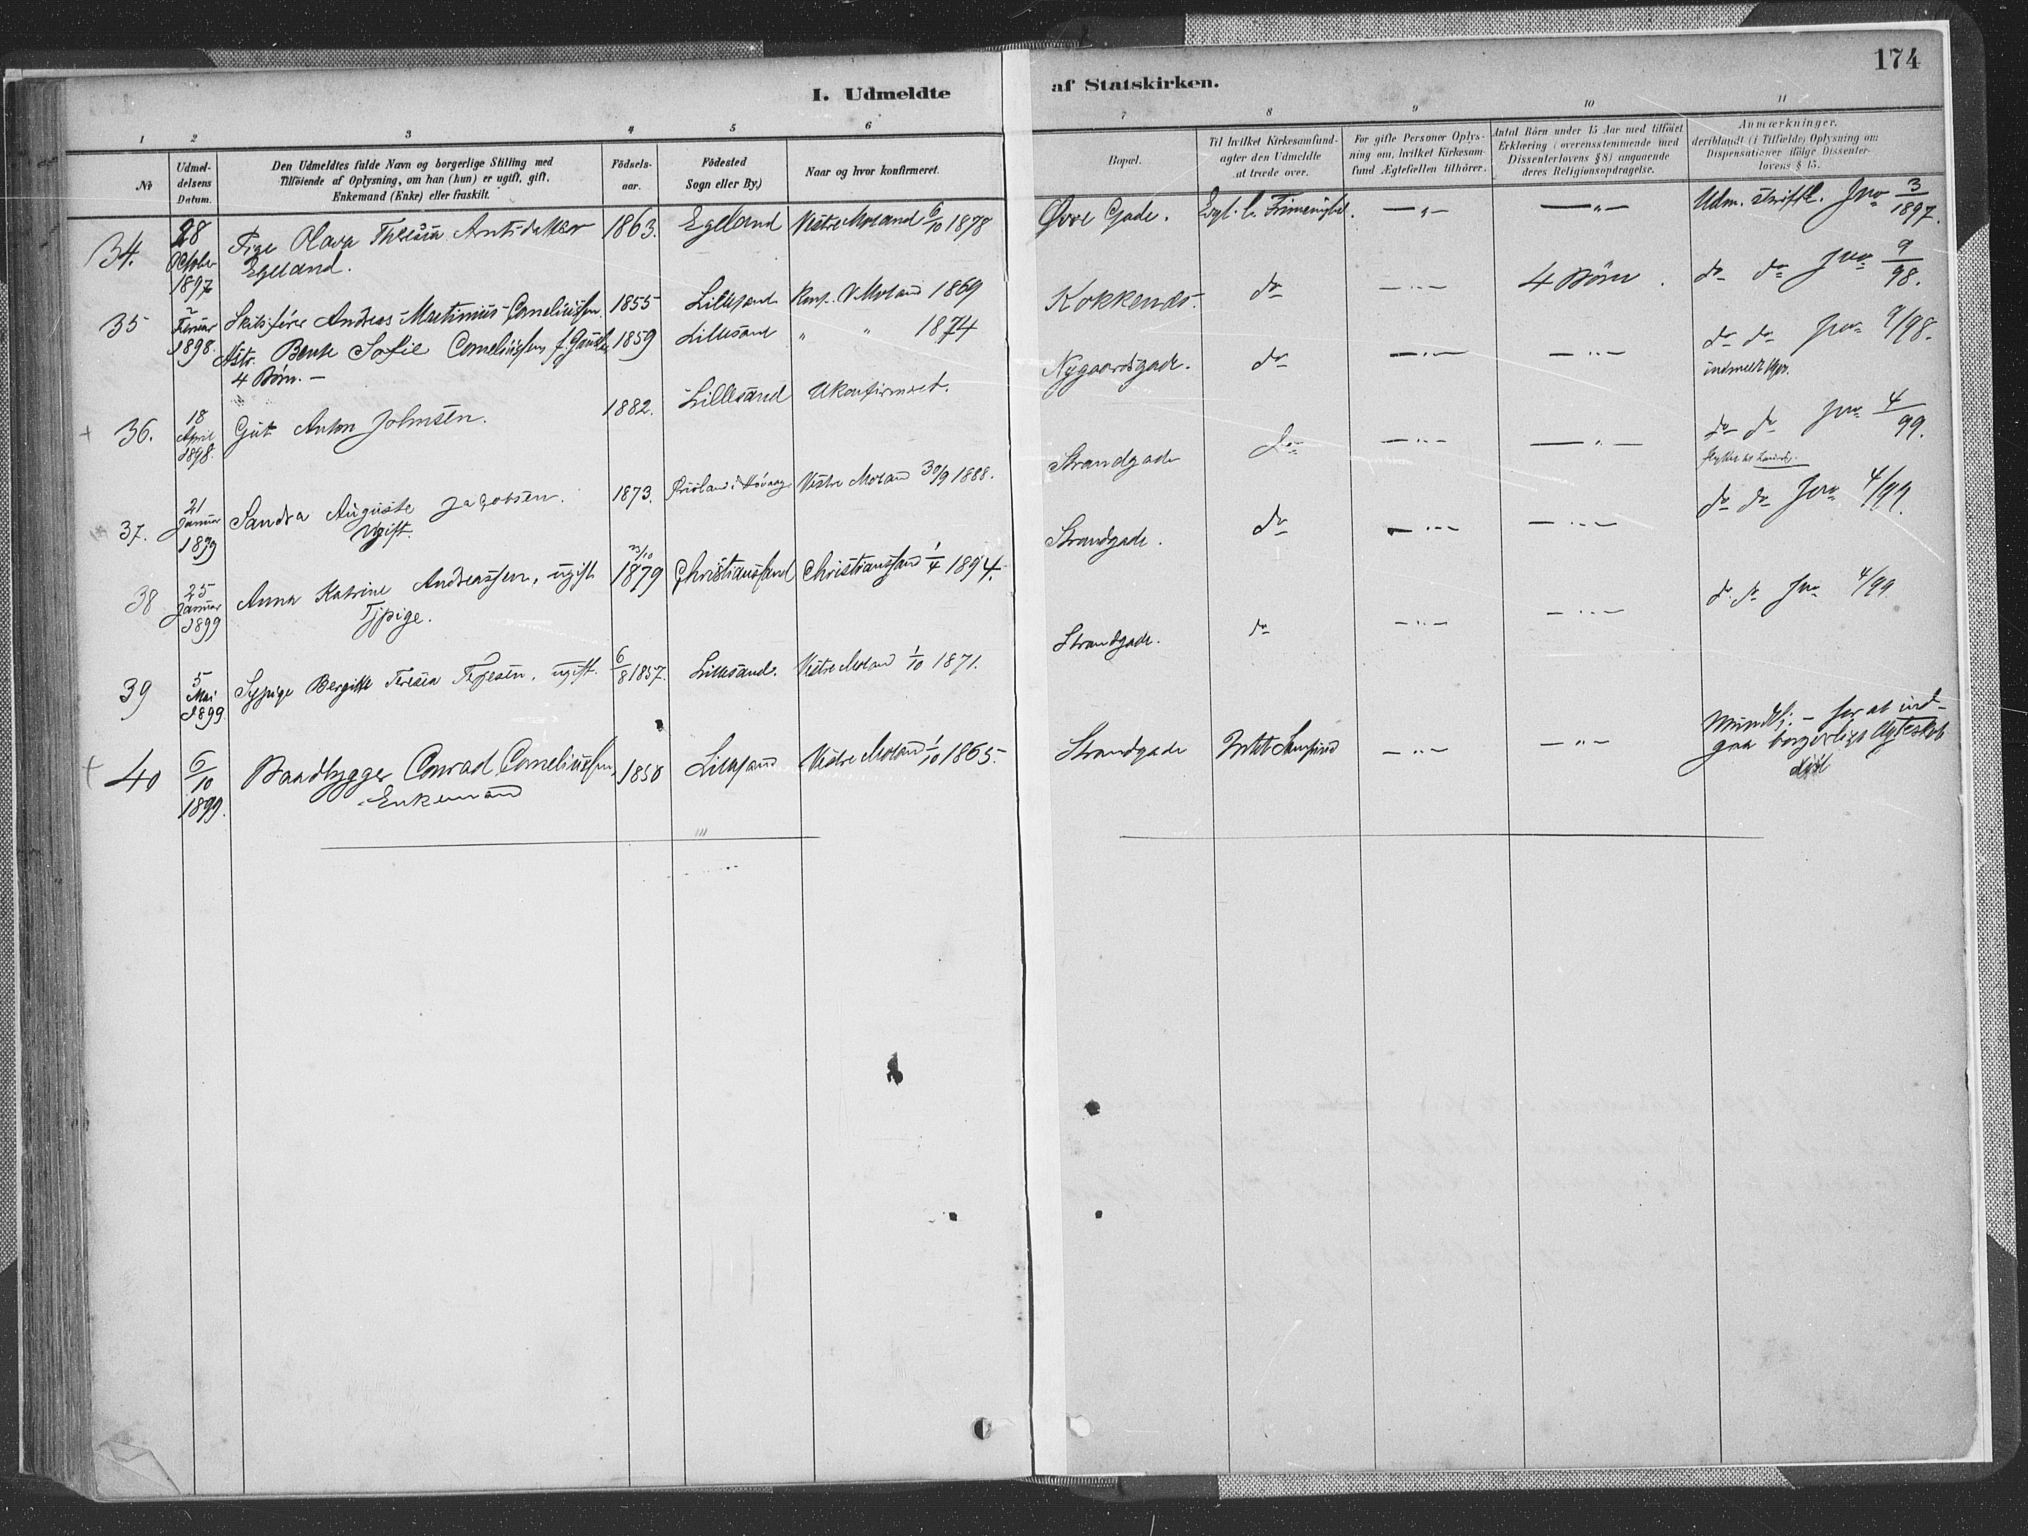 174
I. Udmeldte af Statskirken.
1 2 3 4 5 6 7 8 9 10 11
No
Udmel-
delsens
Datum.
Den Udmeldtes fulde Navn og borgerlige Stilling med
Tilföiende af Oplysning, om han (hun) er ugift, gift,
Enkemand (Enke) eller fraskilt.
Födsels-
aar.
Födested
Sogn eller By,)
Naar og hvor konfirmeret.
Bopæl.
Til hvilket Kirkesamfund-
agter den Udmeldte
at træde over.
For gifte Personer Oplys-
ning om, hvilket Kirkesam-
fund Ægtefællen tilhörer.
Antal Börn under 15 Aar med tilföiet
Erklæring (overensstemmende med
Dissenterlovens § 8) angaaende
deres Religionsopdragelse.
Anmærkninger.
deriblandt (i Tilfælde) Oplysning om
Dispensationer ifölge Dissenter-
lovens § 15.
34. 28 October 1897 Pige Olava Theresia Arntsdatter 1863. Egeland Vestre Moland 6/10 1878
Egeland.
Øvre Gade. Evgl. l. Frimenighed. — " — — " — Udm. skriftl. Jno 3/1897.
35 Februar 1898. Skibsfører Andreas Martinius Corneliussen. 1855 Lillesand Konf. V. Moland 1869
Hstr. Bente Sofie Corneliussen f. 1859 Lillesand " " 1874
4 Børn. —
Kokkenes. do — " — 4 Børn. do do Jno 9/98.
36. 18 April 1898. Gut Anton Johnsen. 1882. Lillesand Ukonfirmeret.
Nygaardsgade. do — " — — " — do do Jno 9/98.
indmeldt
37. 21 Januar 1899 Sandra Auguste Jacobsen. 1873. i Høvaag Vestre Moland 30/9 1888.
Ugift.
Strandgade do — " — — " — do do Jno 4/99.
flyttet
38 25 Januar 1899 Anna Katrine Andreassen, ugift 23/10 1879 Christianssand Christianssand 1/4 1894.
Tjpige.
Strandgade. do — " — — " — do do Jno 4/99.
39 5 Mai 1899 Sypige Bergitte Teresia Terjesen, ugift. 6/8 1857. Lillesand. Vestre Moland 1/10 1871.
Strandgade. do — " — — " — do do Jno 4/99
40 6/10 1899. Baadbygger Conrad Corneliussen, 1850 Lillesand Vestre Moland 1/10 1865.
Enkemand
Strandgade Intet Samfund — " — — " — Mundtl. — for at ind-
gaa borgerligt Ægteskab